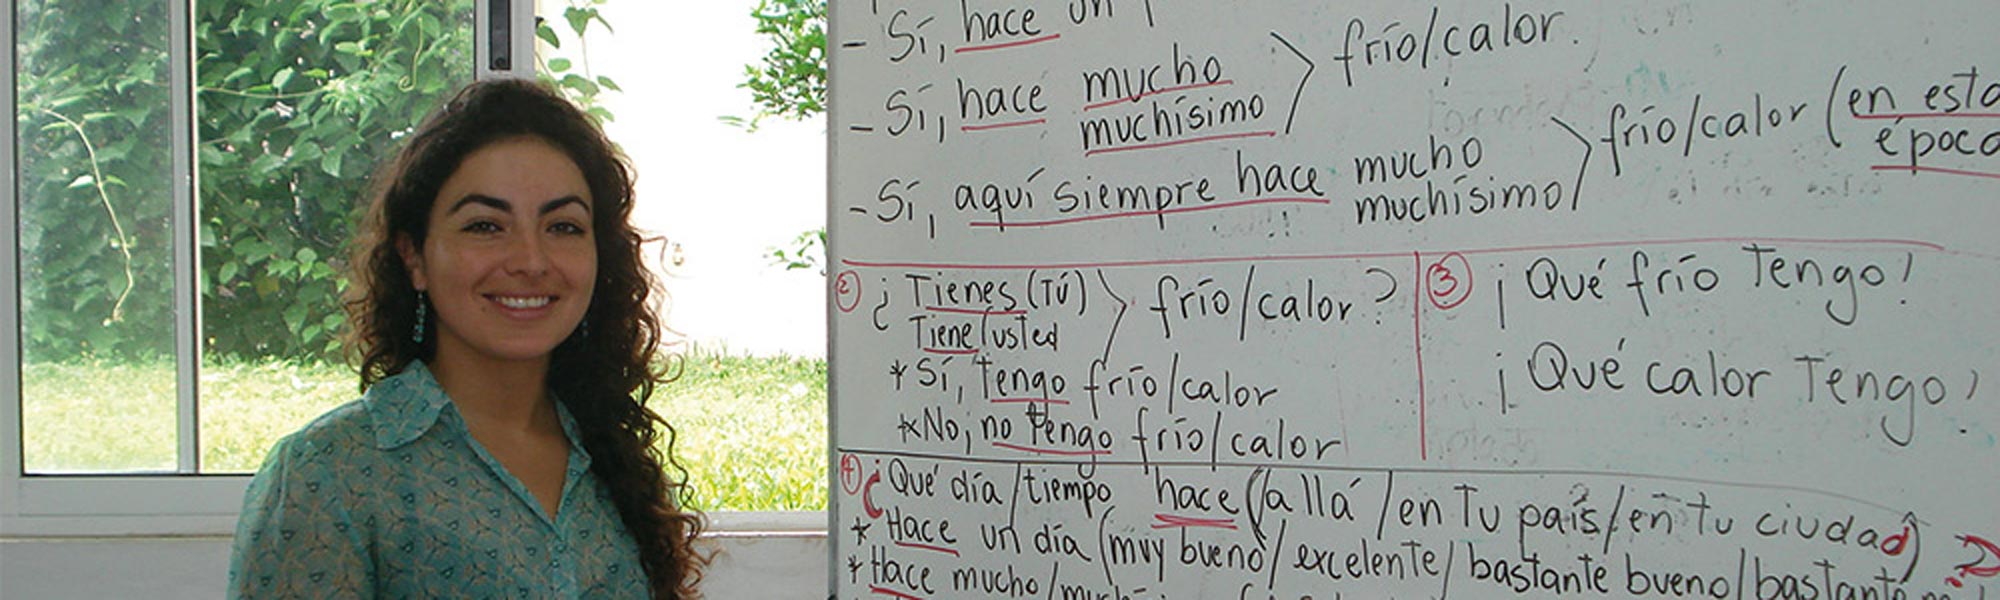 - Sí, hace un
- Sí, hace mucho
muchísimo
frío/calor.
- Sí, aquí siempre hace mucho
muchísimo
frío/calor (en esta
época
② ¿Tienes (Tú)
Tiene (usted
frío/calor?
* Sí, tengo frío/calor
* No, no tengo frío/calor
③ ¡Qué frío Tengo!
¡Qué calor Tengo!
④ ¿Qué día/tiempo hace (allá/en Tu país/en tu ciudad)?
* Hace un día (muy bueno/excelente/bastante bueno/bastante
* Hace mucho/